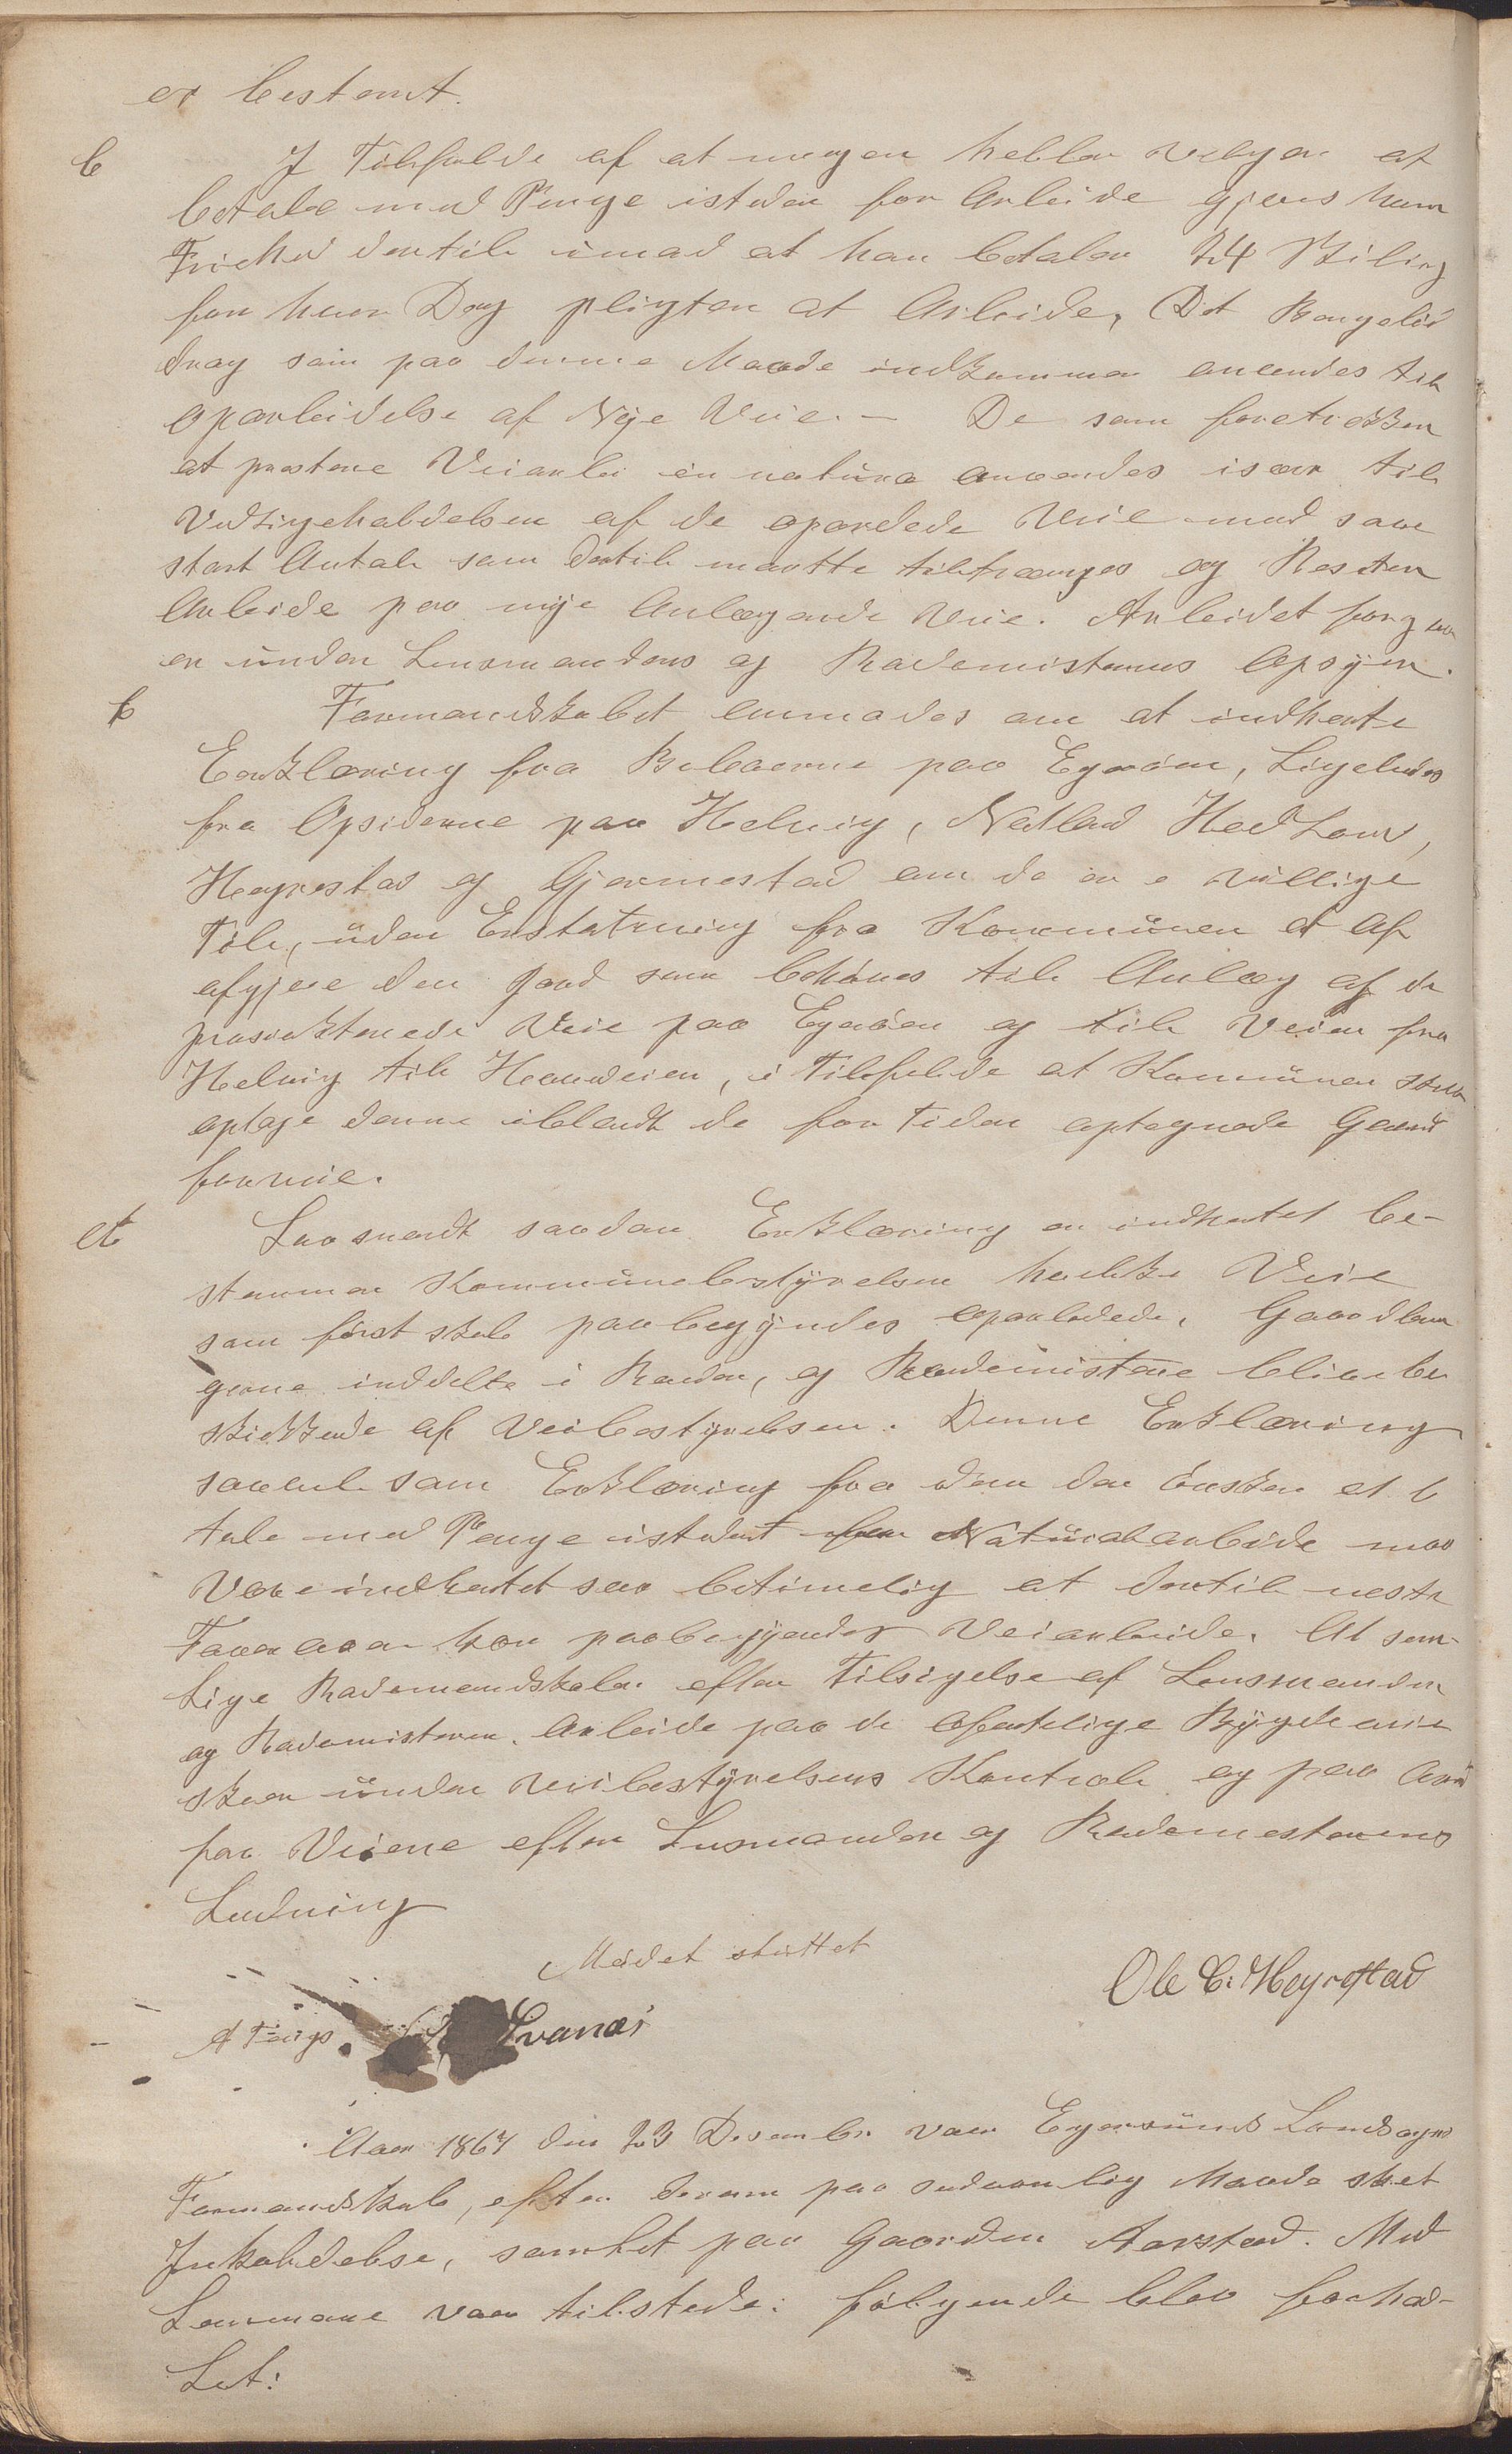 er bestemt.
b
I Tilfælde af at nogen heller velger at
betale med Penge isteden for Arbeide gjeves ham
Friehed dertil imod at han betaler 24 Skiling
for hver Dag pligten at Arbeide, Det Pengebi
drag som paa denne Maade indkommer anvendes til
oparbeidelse af Nye Veie. — De som foretrekker
at prestere Veiarbei in natura anvendes især til
Vedligehaldelsen af de oparbdede Veie med saa
stort Antal som dertil maatte tiltrænges og Resten
Arbeide paa nye Anlægende Veie. Arbeidet foregaa
er under Lensmandens og Rademisterens Opsyn.
c
Formandskabet anmodes om at indhente
Erklæring fra Beboerne paa Egerøen, Ligeledes
fra Opsiderne paa Helvig, Nedland Hedland,
Hegrestad og Gjermestad om de er e villige
Till, uden Erstatning fra Kommunen at af
afgjeve den Jord som behøves till Anlæg af de
prosiekterede Veie paa Egerøen og till Veien fra
Helvig till Hovedveien, i Tilfelde at Kommunen skul
optage denne iblandt de for tiden optegnede Gaard
forveie.
d
Saasnardt saadan Erklæring er indhentet be-
stemmer Kommunebestyrelsen hvilke Veie
som først skal paabegyndes oparbdede, Gaardbru
gerne inddelte i Roder, og Rodemistere blive be
skikkede af Veibestyrelsen. Denne Erklæring
saavel som Erklæring fra dem der ønsker at b
tale med Penge istedent for Naturalarbeide maa
Være indhentet saa betimelig at dertil neste
Foraar kan paabegyndes Veiarbeide. At sam-
tlige Rademandskaber efter Tilsigelse af Lensmanden
og Rademisteren. Arbeide paa de ofentlige Bygdeveie
skeer under Veibestyrelsens Kontrol og paa
for Veiene efter Lensmanden og Rademesterens
Ledning
Mødet sluttet
Ole C. Hegrestad
A Feigs Svanæs
Aar 1867 den 23 Desember var Egersunds Landsogns
Formandskab, efter derom paa sedvanlig Maade skeet
Inkaldelse, samlet paa Gaarden Aarstad. Med
Lemmene var tilstede: følgende blev forhad-
let: